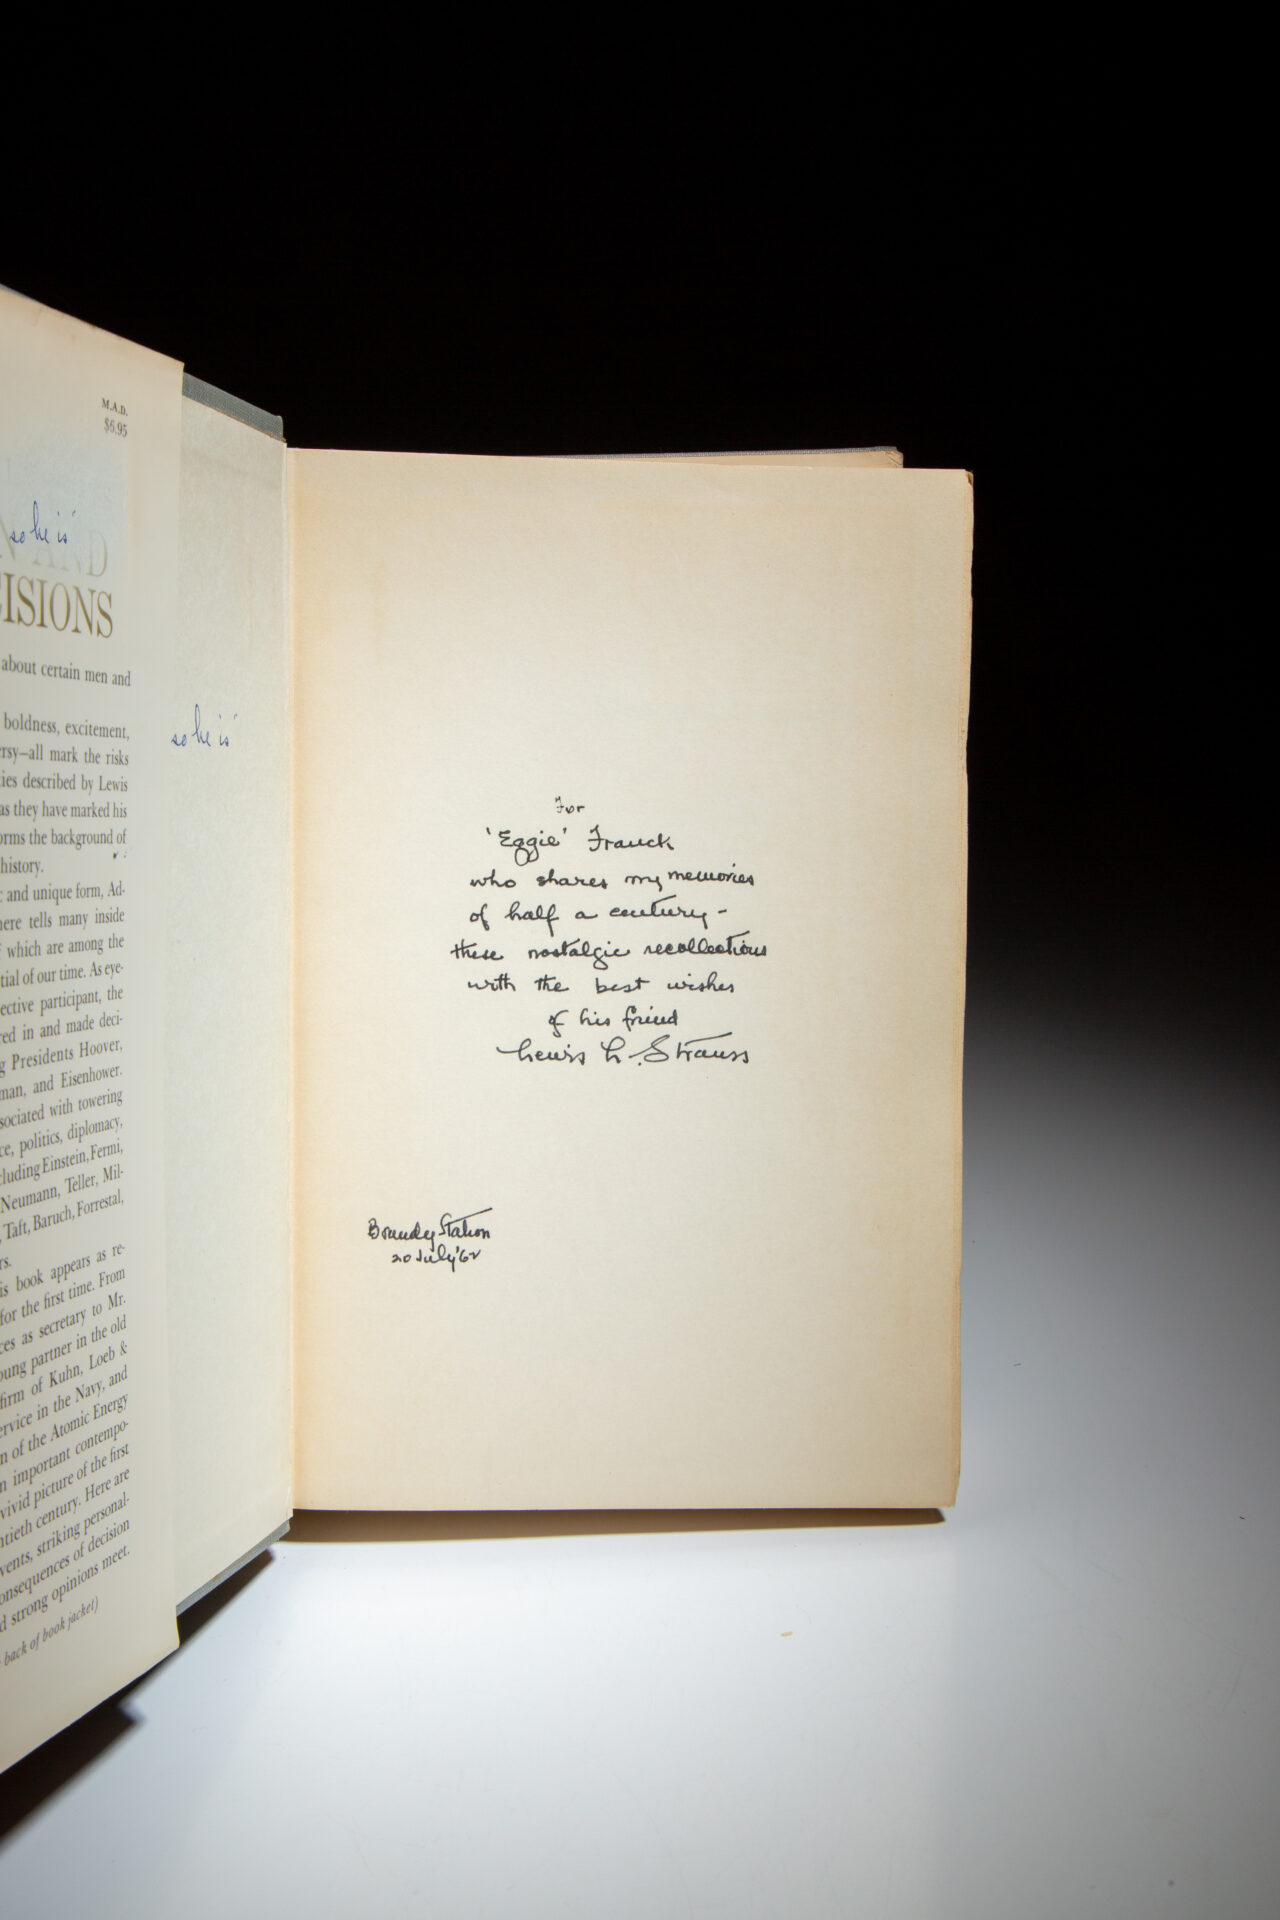 M.A.D.
$6.95
so he is
N AND
CISIONS
about certain men and
boldness, excitement,
ersy—all mark the risks
ties described by Lewis
as they have marked his
orms the background of
history.
and unique form, Ad-
here tells many inside
which are among the
tial of our time. As eye-
ective participant, the
red in and made deci-
g Presidents Hoover,
man, and Eisenhower.
sociated with towering
ce, politics, diplomacy,
cluding Einstein, Fermi,
Neumann, Teller, Mil-
, Taft, Baruch, Forrestal,
rs.
is book appears as re-
for the first time. From
ces as secretary to Mr.
oung partner in the old
firm of Kuhn, Loeb &
ervice in the Navy, and
n of the Atomic Energy
n important contempo-
vivid picture of the first
ntieth century. Here are
vents, striking personal-
onsequences of decision
d strong opinions meet.
back of book jacket)
so he is
For
'Eggie' Franck
who shares my memories
of half a century -
these nostalgic recollections
with the best wishes
of his friend
Lewis L. Strauss
Brandy Station
20 July '62